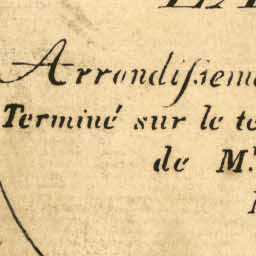 Arrondiſsem
Terminé sur le te
de M.r